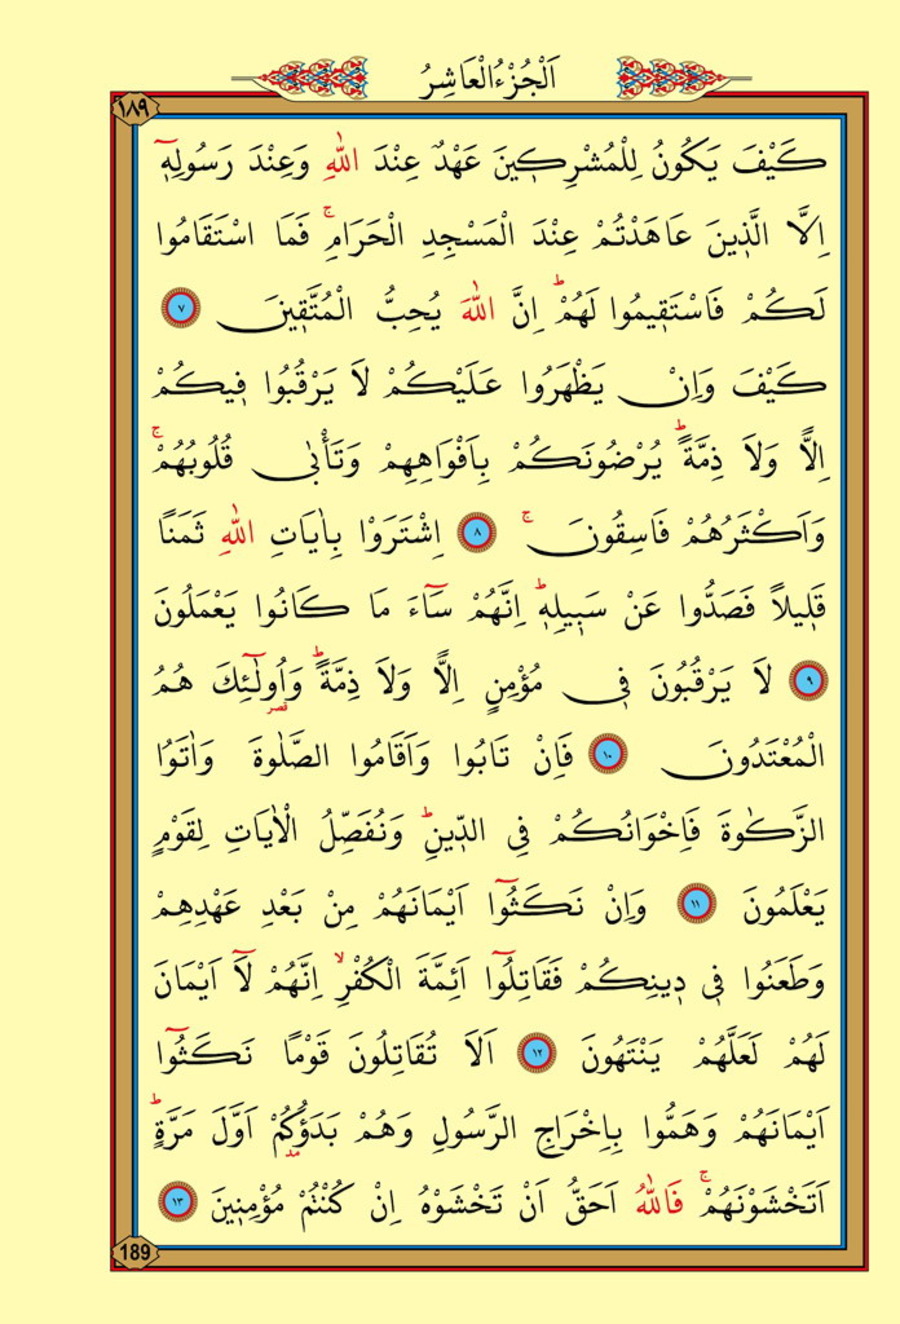 اَلْجُزْءُ الْعَاشِرُ
١٨٩
كَيْفَ يَكُونُ لِلْمُشْرِكٖينَ عَهْدٌ عِنْدَ اللّٰهِ وَعِنْدَ رَسُولِهٖٓ
اِلَّا الَّذٖينَ عَاهَدْتُمْ عِنْدَ الْمَسْجِدِ الْحَرَامِۚ فَمَا اسْتَقَامُوا
لَكُمْ فَاسْتَقٖيمُوا لَهُمْؕ اِنَّ اللّٰهَ يُحِبُّ الْمُتَّقٖينَ ٧
كَيْفَ وَاِنْ يَظْهَرُوا عَلَيْكُمْ لَا يَرْقُبُوا فٖيكُمْ
اِلًّا وَلَا ذِمَّةًؕ يُرْضُونَكُمْ بِاَفْوَاهِهِمْ وَتَأْبٰى قُلُوبُهُمْۚ
وَاَكْثَرُهُمْ فَاسِقُونَۚ ٨ اِشْتَرَوْا بِاٰيَاتِ اللّٰهِ ثَمَنًا
قَلٖيلًا فَصَدُّوا عَنْ سَبٖيلِهٖؕ اِنَّهُمْ سَٓاءَ مَا كَانُوا يَعْمَلُونَ
٩ لَا يَرْقُبُونَ فٖى مُؤْمِنٍ اِلًّا وَلَا ذِمَّةًؕ وَاُو۬لٰٓئِكَ هُمُ
قصر
الْمُعْتَدُونَ ١٠ فَاِنْ تَابُوا وَاَقَامُوا الصَّلٰوةَ وَاٰتَوُا
الزَّكٰوةَ فَاِخْوَانُكُمْ فِى الدّٖينِؕ وَنُفَصِّلُ الْاٰيَاتِ لِقَوْمٍ
يَعْلَمُونَ ١١ وَاِنْ نَكَثُٓوا اَيْمَانَهُمْ مِنْ بَعْدِ عَهْدِهِمْ
وَطَعَنُوا فٖى دٖينِكُمْ فَقَاتِلُٓوا اَئِمَّةَ الْكُفْرِۙ اِنَّهُمْ لَٓا اَيْمَانَ
لَهُمْ لَعَلَّهُمْ يَنْتَهُونَ ١٢ اَلَا تُقَاتِلُونَ قَوْمًا نَكَثُٓوا
اَيْمَانَهُمْ وَهَمُّوا بِاِخْرَاجِ الرَّسُولِ وَهُمْ بَدَؤُ۫كُمْ اَوَّلَ مَرَّةٍؕ
مد
اَتَخْشَوْنَهُمْۚ فَاللّٰهُ اَحَقُّ اَنْ تَخْشَوْهُ اِنْ كُنْتُمْ مُؤْمِنٖينَ ١٣
189